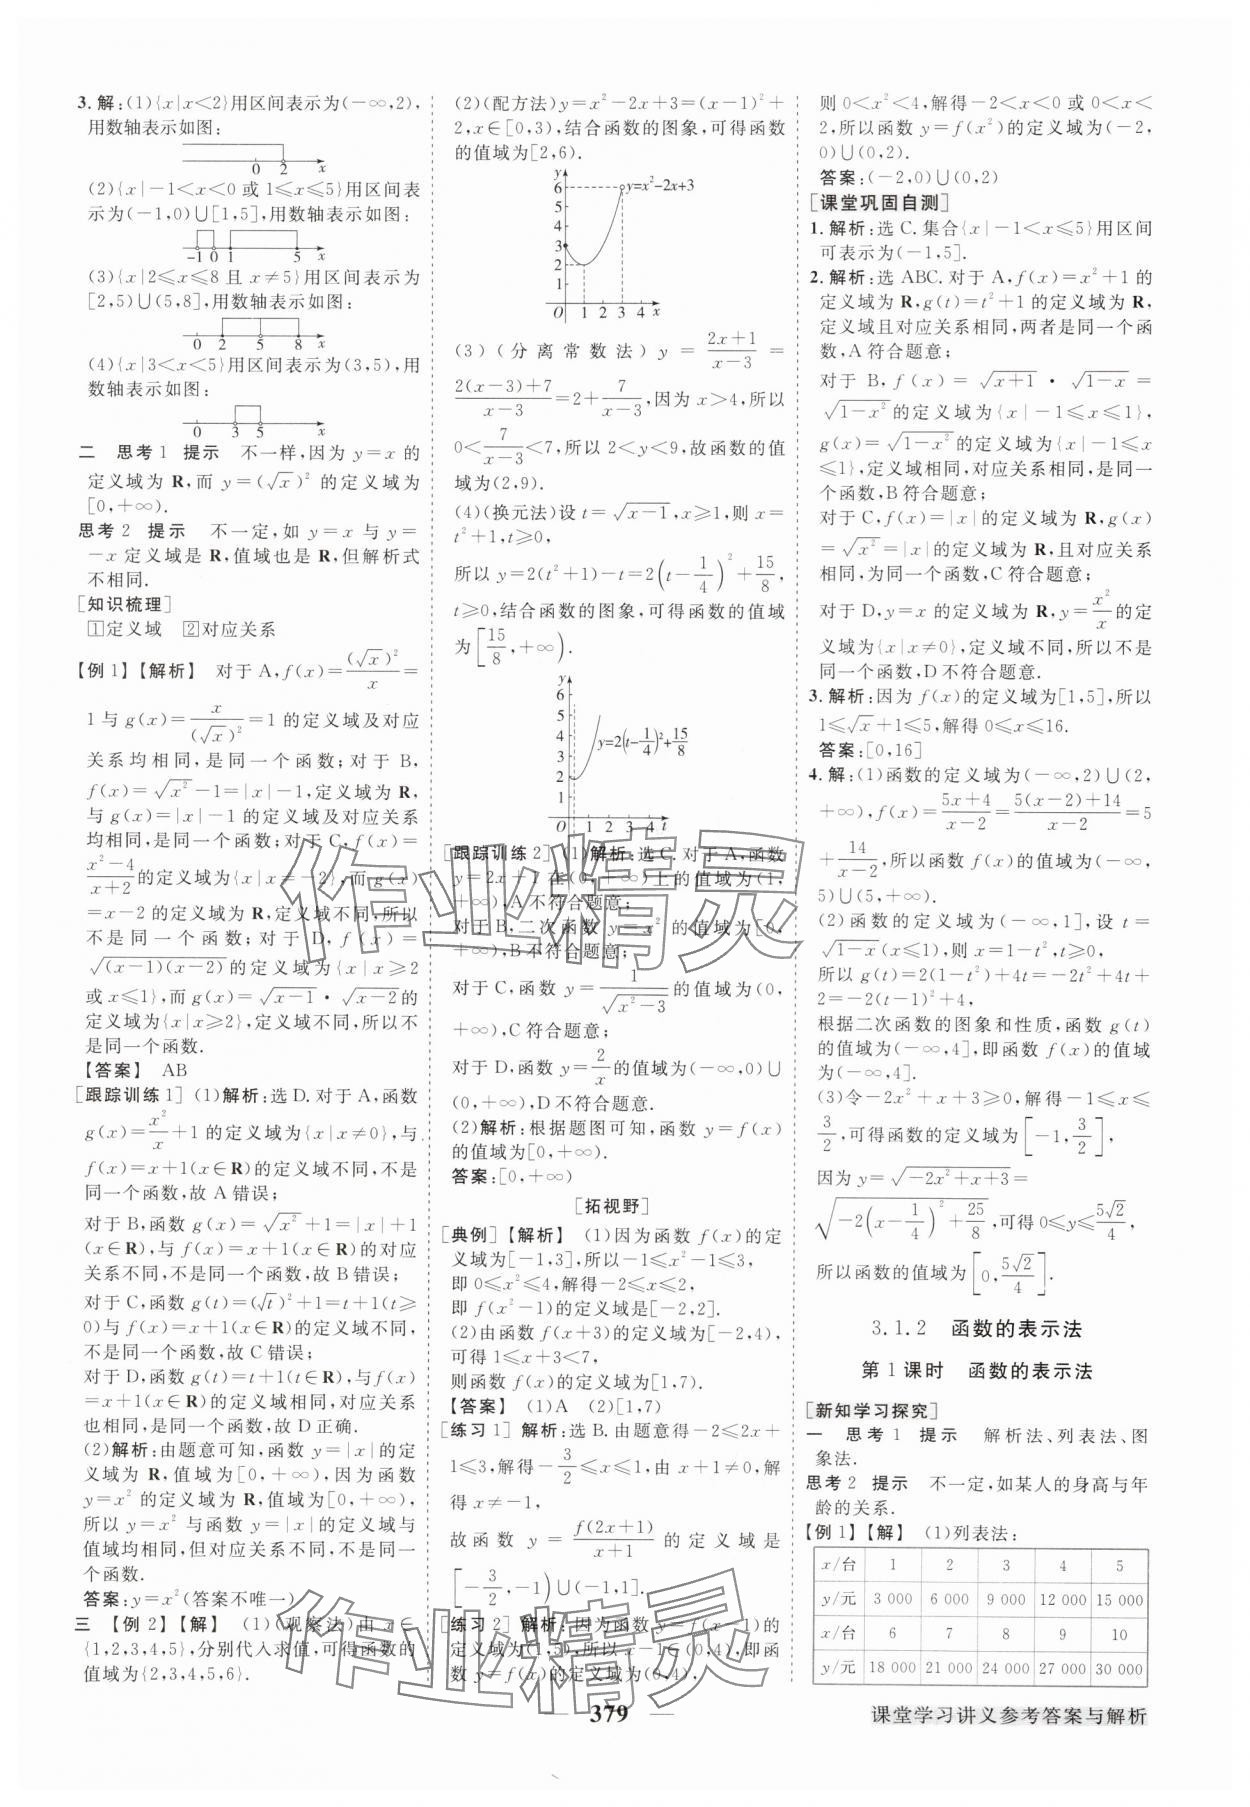 3.解:(1){x|x<2}用区间表示为(-∞,2),
用数轴表示如图:
0 2 x
(2){x|-1<x<0 或 1≤x≤5}用区间表
示为(-1,0)∪[1,5],用数轴表示如图:
-1 0 1 5 x
(3){x|2≤x≤8 且 x≠5}用区间表示为
[2,5)∪(5,8],用数轴表示如图:
0 2 5 8 x
(4){x|3<x<5}用区间表示为(3,5),用
数轴表示如图:
0 3 5 x
二 思考1 提示 不一样,因为 y=x 的
定义域为 R,而 y=(√x)² 的定义域为
[0,+∞).
思考2 提示 不一定,如 y=x 与 y=
-x 定义域是 R,值域也是 R,但解析式
不相同.
[知识梳理]
①定义域 ②对应关系
【例1】【解析】 对于 A,f(x)=(√x)²/x=
1与 g(x)=x/(√x)²=1 的定义域及对应
关系均相同,是同一个函数;对于 B,
f(x)=√x²-1=|x|-1,定义域为 R,
与 g(x)=|x|-1 的定义域及对应关系
均相同,是同一个函数;对于 C,f(x)=
x²-4/x+2的定义域为{x|x≠-2},而 g(x)
=x-2 的定义域为 R,定义域不同,所以
不是同一个函数;对于 D,f(x)=
√(x-1)(x-2)的定义域为{x|x≥2
或x≤1},而 g(x)=√x-1·√x-2的
定义域为{x|x≥2},定义域不同,所以不
是同一个函数.
【答案】 AB
[跟踪训练1] (1)解析:选 D.对于 A,函数
g(x)=x²/x+1 的定义域为{x|x≠0},与
f(x)=x+1(x∈R)的定义域不同,不是
同一个函数,故 A 错误;
对于 B,函数 g(x)=√x²+1=|x|+1
(x∈R),与 f(x)=x+1(x∈R)的对应
关系不同,不是同一个函数,故 B 错误;
对于 C,函数 g(t)=(√t)²+1=t+1(t≥
0)与 f(x)=x+1(x∈R)的定义域不同,
不是同一个函数,故 C 错误;
对于 D,函数 g(t)=t+1(t∈R),与 f(x)
=x+1(x∈R)的定义域相同,对应关系
也相同,是同一个函数,故 D 正确.
(2)解析:由题意可知,函数 y=|x|的定
义域为 R,值域为[0,+∞),因为函数
y=x² 的定义域为 R,值域为[0,+∞),
所以 y=x² 与函数 y=|x|的定义域与
值域均相同,但对应关系不同,不是同一
个函数.
答案:y=x²(答案不唯一)
三 【例2】【解】 (1)(观察法)由 x∈
{1,2,3,4,5},分别代入求值,可得函数的
值域为{2,3,4,5,6}.
(2)(配方法)y=x²-2x+3=(x-1)²+
2,x∈[0,3),结合函数的图象,可得函数
的值域为[2,6).
y
6
5
4
3
2
1
y=x²-2x+3
O 1 2 3 4 x
(3)(分离常数法)y=2x+1/x-3=
2(x-3)+7/x-3=2+7/x-3,因为 x>4,所以
0<7/x-3<7,所以 2<y<9,故函数的值
域为(2,9).
(4)(换元法)设 t=√x-1,x≥1,则 x=
t²+1,t≥0,
所以 y=2(t²+1)-t=2(t-1/4)²+15/8,
t≥0,结合函数的图象,可得函数的值域
为[15/8,+∞).
y
6
5
4
3
2
1
y=2(t-1/4)²+15/8
O 1 2 3 4 t
[跟踪训练2] (1)解析:选 C.对于 A,函数
y=2x+1 在(0,+∞)上的值域为(1,
+∞),A 不符合题意;
对于 B,二次函数 y=x² 的值域为[0,
+∞),B 不符合题意;
对于 C,函数 y=1/√x²-3的值域为(0,
+∞),C 符合题意;
对于 D,函数 y=2/x的值域为(-∞,0)∪
(0,+∞),D 不符合题意.
(2)解析:根据题图可知,函数 y=f(x)
的值域为[0,+∞).
答案:[0,+∞)
[拓视野]
[典例]【解析】 (1)因为函数 f(x)的定
义域为[-1,3],所以-1≤x²-1≤3,
即 0≤x²≤4,解得-2≤x≤2,
即 f(x²-1)的定义域是[-2,2].
(2)由函数 f(x+3)的定义域为[-2,4),
可得 1≤x+3<7,
则函数 f(x)的定义域为[1,7).
【答案】 (1)A (2)[1,7)
[练习1] 解析:选 B.由题意得-2≤2x+
1≤3,解得-3/2≤x≤1,由 x+1≠0,解
得 x≠-1,
故函数 y=f(2x+1)/x+1 的定义域是
[-3/2,-1)∪(-1,1].
[练习2] 解析:因为函数 y=f(x-1)的
定义域为(1,5),所以 x-1∈(0,4),即函
数 y=f(x)的定义域为(0,4),
则 0<x²<4,解得-2<x<0 或 0<x<
2,所以函数 y=f(x²)的定义域为(-2,
0)∪(0,2).
答案:(-2,0)∪(0,2)
[课堂巩固自测]
1.解析:选 C.集合{x|-1<x≤5}用区间
可表示为(-1,5].
2.解析:选 ABC.对于 A,f(x)=x²+1 的
定义域为 R,g(t)=t²+1 的定义域为 R,
定义域且对应关系相同,两者是同一个函
数,A 符合题意;
对于 B,f(x)=√x+1·√1-x=
√1-x²的定义域为{x|-1≤x≤1},
g(x)=√1-x²的定义域为{x|-1≤x
≤1},定义域相同,对应关系相同,是同一
个函数,B 符合题意;
对于 C,f(x)=|x|的定义域为 R,g(x)
=√x²=|x|的定义域为 R,且对应关系
相同,为同一个函数,C 符合题意;
对于 D,y=x 的定义域为 R,y=x²/x的定
义域为{x|x≠0},定义域不同,所以不是
同一个函数,D 不符合题意.
3.解析:因为 f(x)的定义域为[1,5],所以
1≤√x+1≤5,解得 0≤x≤16.
答案:[0,16]
4.解:(1)函数的定义域为(-∞,2)∪(2,
+∞),f(x)=5x+4/x-2=5(x-2)+14/x-2=5
+14/x-2,所以函数 f(x)的值域为(-∞,
5)∪(5,+∞).
(2)函数的定义域为(-∞,1],设 t=
√1-x(x≤1),则 x=1-t²,t≥0,
所以 g(t)=2(1-t²)+4t=-2t²+4t+
2=-2(t-1)²+4,
根据二次函数的图象和性质,函数 g(t)
的值域为(-∞,4],即函数 f(x)的值域
为(-∞,4].
(3)令-2x²+x+3≥0,解得-1≤x≤
3/2,可得函数的定义域为[-1,3/2],
因为 y=√-2x²+x+3=
√-2(x-1/4)²+25/8,可得 0≤y≤5√2/4,
所以函数的值域为[0,5√2/4].
3.1.2 函数的表示法
第1课时 函数的表示法
[新知学习探究]
一 思考1 提示 解析法、列表法、图
象法.
思考2 提示 不一定,如某人的身高与年
龄的关系.
【例1】【解】 (1)列表法:
x/台 1 2 3 4 5
y/元 3 000 6 000 9 000 12 000 15 000
x/台 6 7 8 9 10
y/元 18 000 21 000 24 000 27 000 30 000
379
课堂学习讲义参考答案与解析
作业精灵
作业精灵